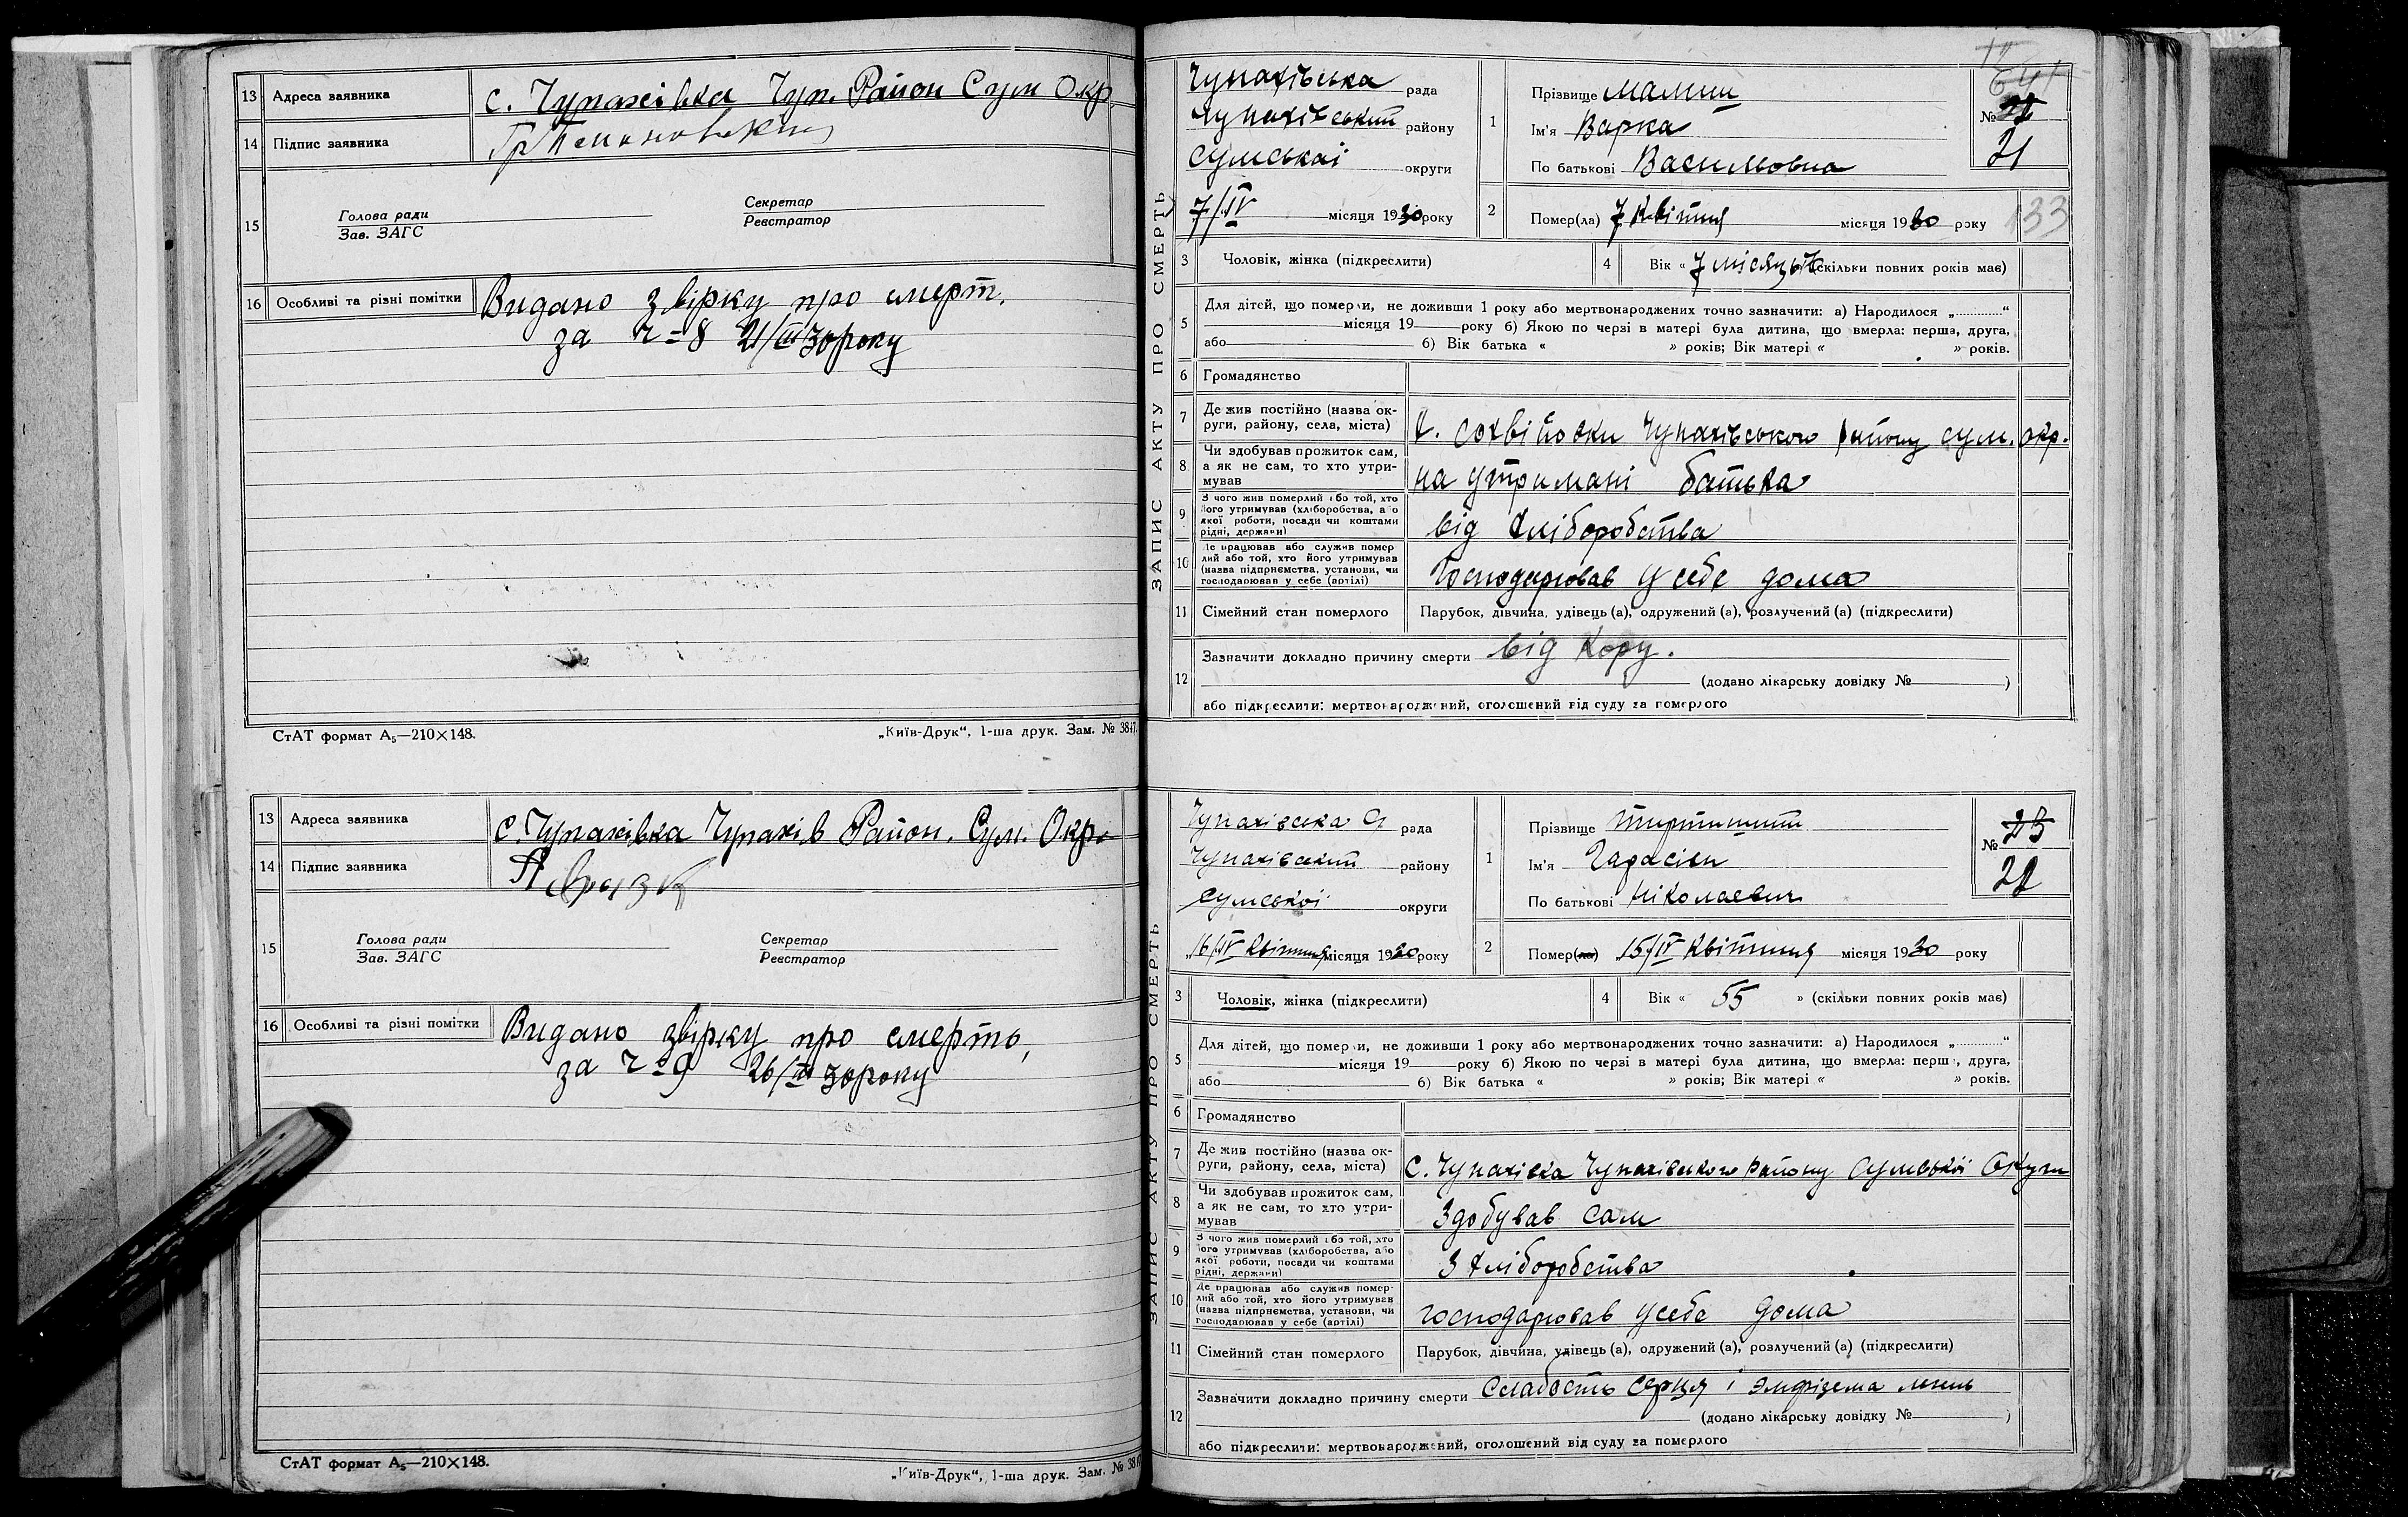 13 Адреса заявника с. Чупахівка Чуп. Район Сум Окр
14 Підпис заявника
15 Голова ради Секретар
Зав. ЗАГС Реєстратор
16 Особливі та різні помітки Видано звірку про смерт.
за ч=8 21/III 30 року
СтАТ формат А₅—210×148. „Київ-Друк“, 1-ша друк. Зам. № 3847.
13 Адреса заявника с. Чупахівка Чупахів Район. Сум. Окр.
14 Підпис заявника
15 Голова ради Секретар
Зав. ЗАГС Реєстратор
16 Особливі та різні помітки Видано звірку про смерть,
за ч=9 26/III 30 року
СтАТ формат А₅—210×148. „Київ-Друк“, 1-ша друк. Зам. № 38
ЗАПИС АКТУ ПРО СМЕРТЬ
Чупахівська рада
Чупахівський району
Сумської округи
„7/IV місяця 1930 року
1 Прізвище
Ім'я Варка
По батькові Васильовна
№
21
2 Помер(ла) 7 Квітня місяця 1930 року
133
3 Чоловік, жінка (підкреслити) 4 Вік « 7 місяців (скільки повних років має)
5 Для дітей, що померли, не доживши 1 року або мертвонароджених точно зазначити: а) Народилося „............“
місяця 19 року б) Якою по черзі в матері була дитина, що вмерла: перша, друга,
або б) Вік батька « » років; Вік матері « » років.
6 Громадянство
7 Де жив постійно (назва ок-
руги, району, села, міста) Чупахівського району Сум. окр.
8 Чи здобував прожиток сам,
а як не сам, то хто утри-
мував на утримані батька
9 З чого жив померлий або той, хто
його утримував (хліборобства, або
якої роботи, посади чи коштами
рідні, держави) від хліборобства
10 Де працював або служив помер
лий або той, хто його утримував
(назва підприємства, установи, чи
господарював у себе (артілі) Господарював у себе дома
11 Сімейний стан померлого Парубок, дівчина, удівець (а), одружений (а), розлучений (а) (підкреслити)
12 Зазначити докладно причину смерти від Кору.
(додано лікарську довідку № )
або підкреслити: мертвонароджений, оголошений від суду за померлого
ЗАПИС АКТУ ПРО СМЕРТЬ
Чупахівська рада
Чупахівський району
Сумської округи
„16/IV Квітня місяця 1930 року
1 Прізвище
Ім'я Гарасім
По батькові Ніколаєвич
№ 25
22
2 Помер(ла) 15/IV Квітня місяця 1930 року
3 Чоловік, жінка (підкреслити) 4 Вік « 55 » (скільки повних років має)
5 Для дітей, що померли, не доживши 1 року або мертвонароджених точно зазначити: а) Народилося „............“
місяця 19 року б) Якою по черзі в матері була дитина, що вмерла: перша, друга,
або б) Вік батька « » років; Вік матері « » років.
6 Громадянство
7 Де жив постійно (назва ок-
руги, району, села, міста) с. Чупахівка Чупахівського району Сумської Округи
8 Чи здобував прожиток сам,
а як не сам, то хто утри-
мував Здобував сам
9 З чого жив померлий або той, хто
його утримував (хліборобства, або
якої роботи, посади чи коштами
рідні, держави) З хліборобства
10 Де працював або служив помер
лий або той, хто його утримував
(назва підприємства, установи, чи
господарював у себе (артілі) господарював у себе дома
11 Сімейний стан померлого Парубок, дівчина, удівець (а), одружений (а), розлучений (а) (підкреслити)
12 Зазначити докладно причину смерти Слабость серця і эмфізема
(додано лікарську довідку № )
або підкреслити: мертвонароджений, оголошений від суду за померлого